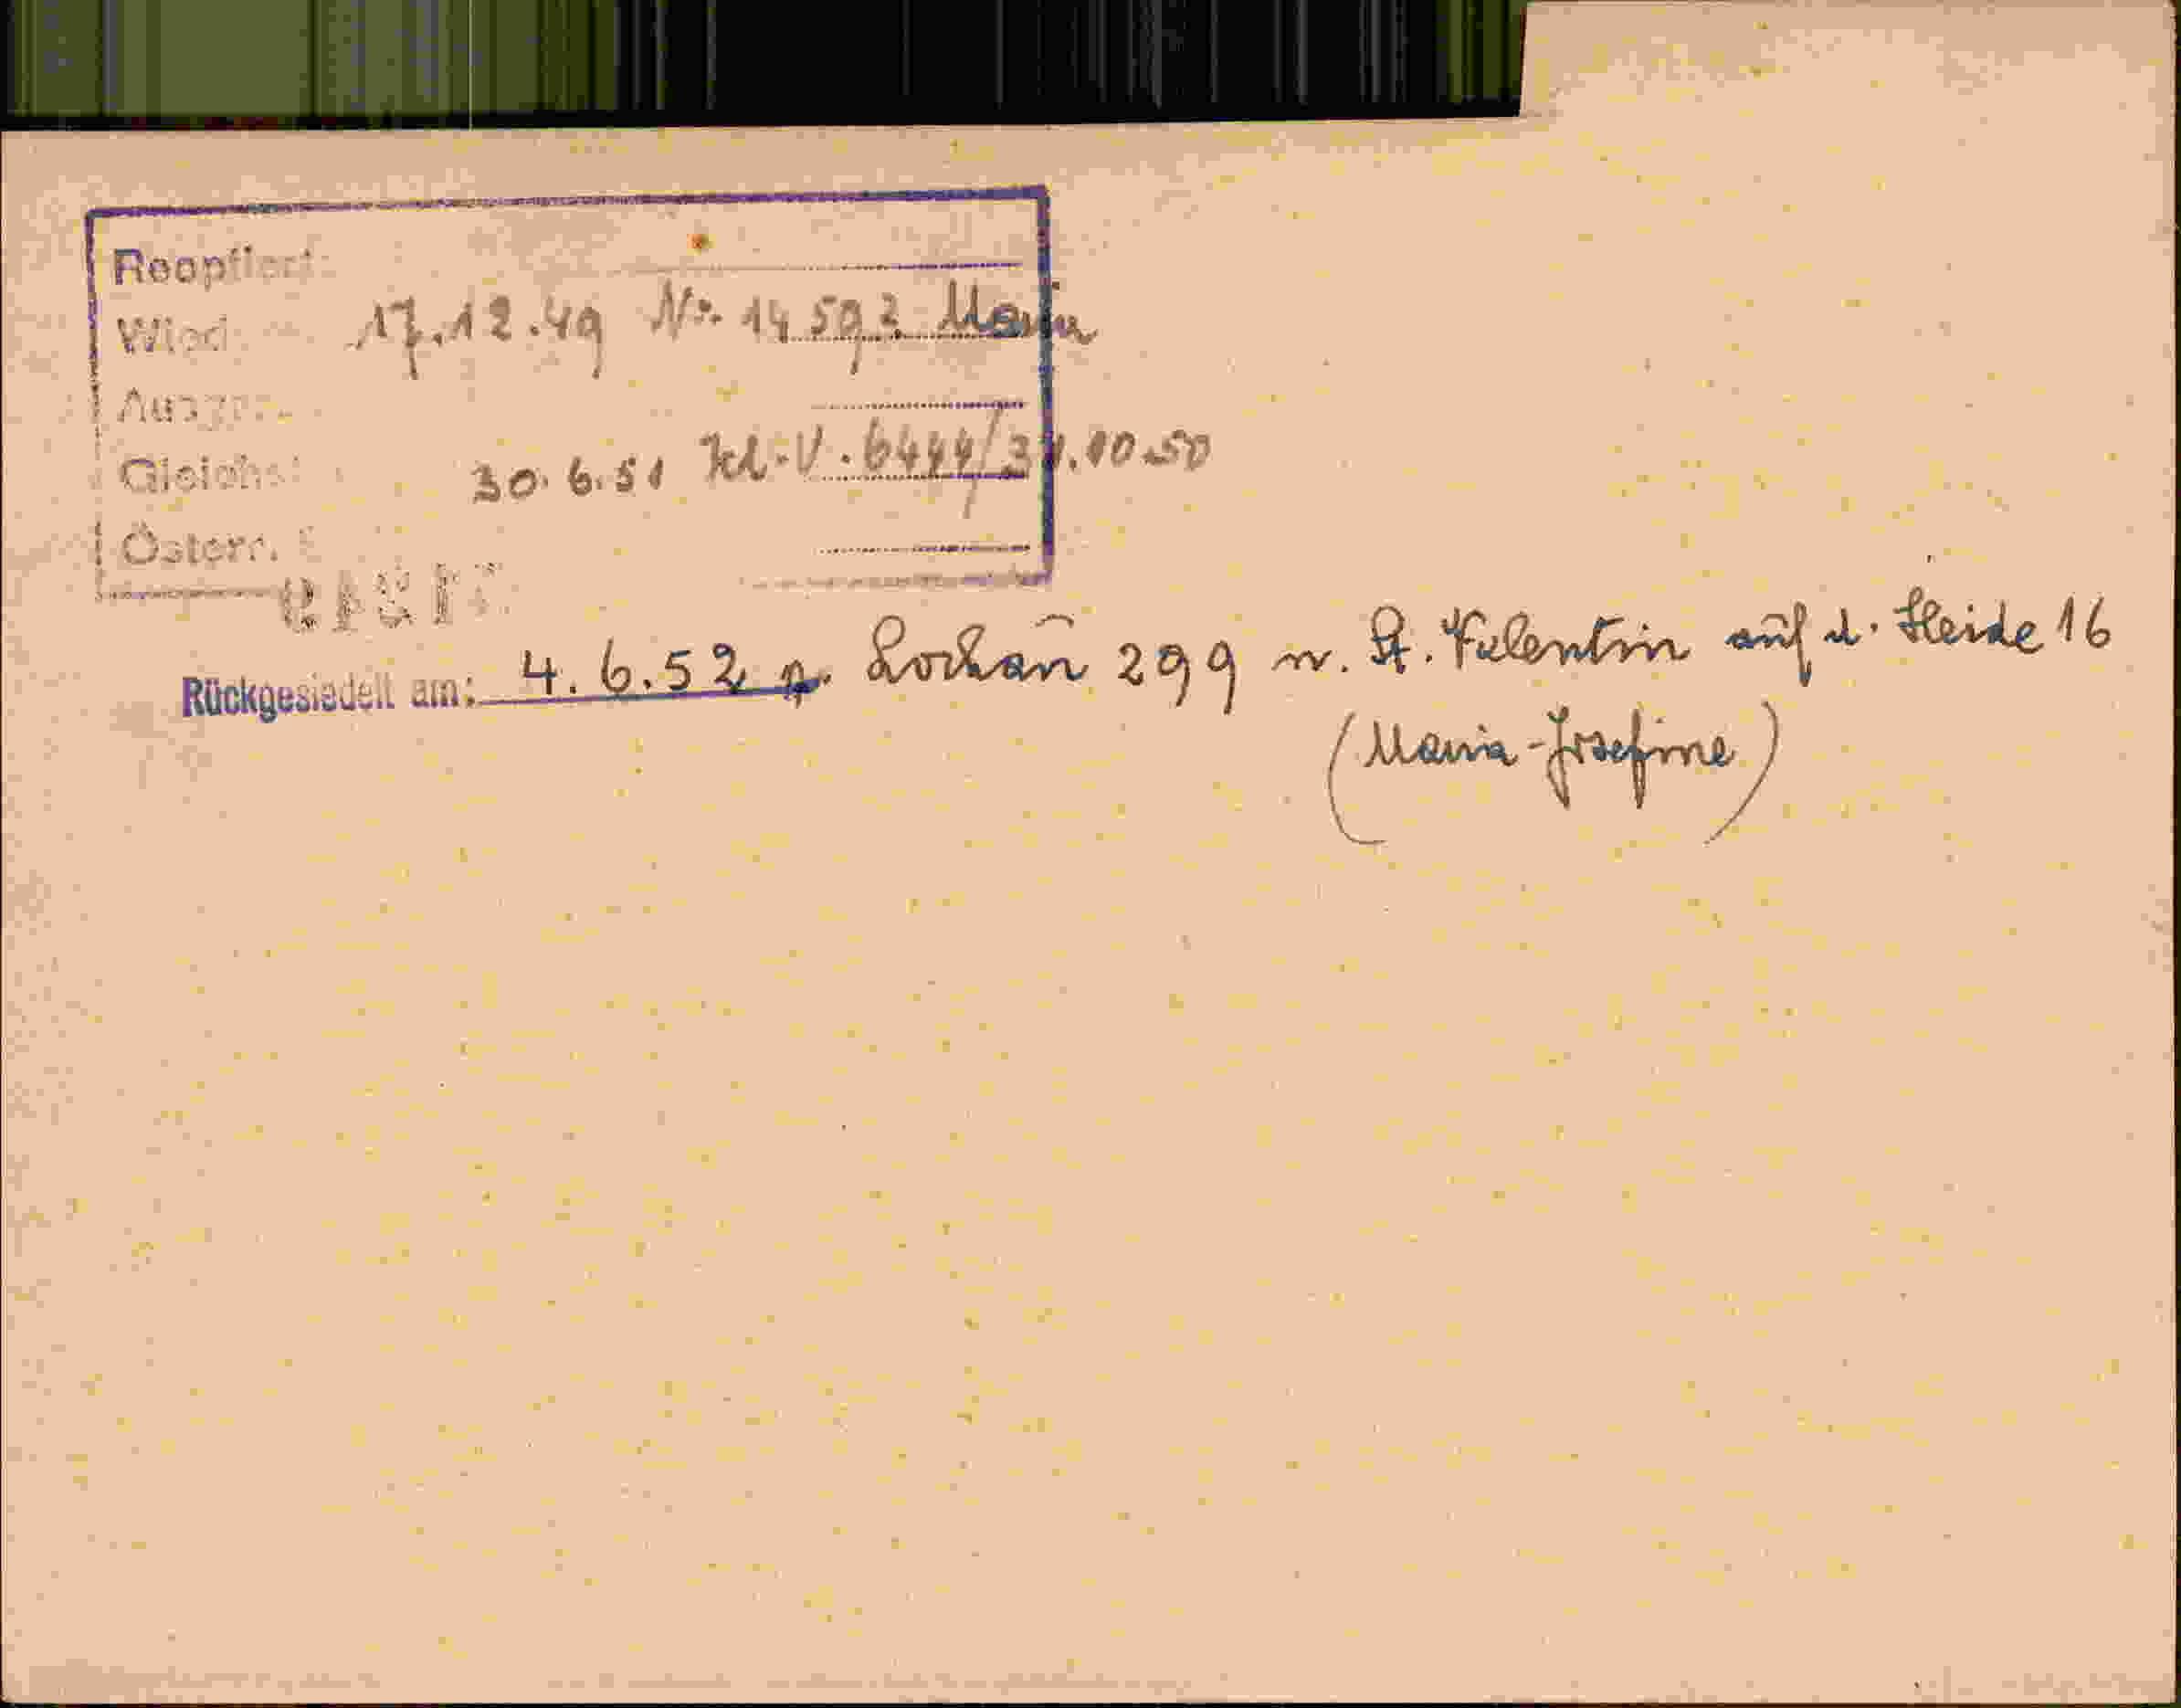 Reoptiert:
Wied. 17.12.49 No. 14592 Maria
Ausgew.
Gleichst. 30.6.51 Kl.V. 6444/31.10.50
Österr.
Rückgesiedelt am: 4.6.52 v. Lochau 299 n. St. Valentin auf d. Heide 16
(Maria-Josefine)